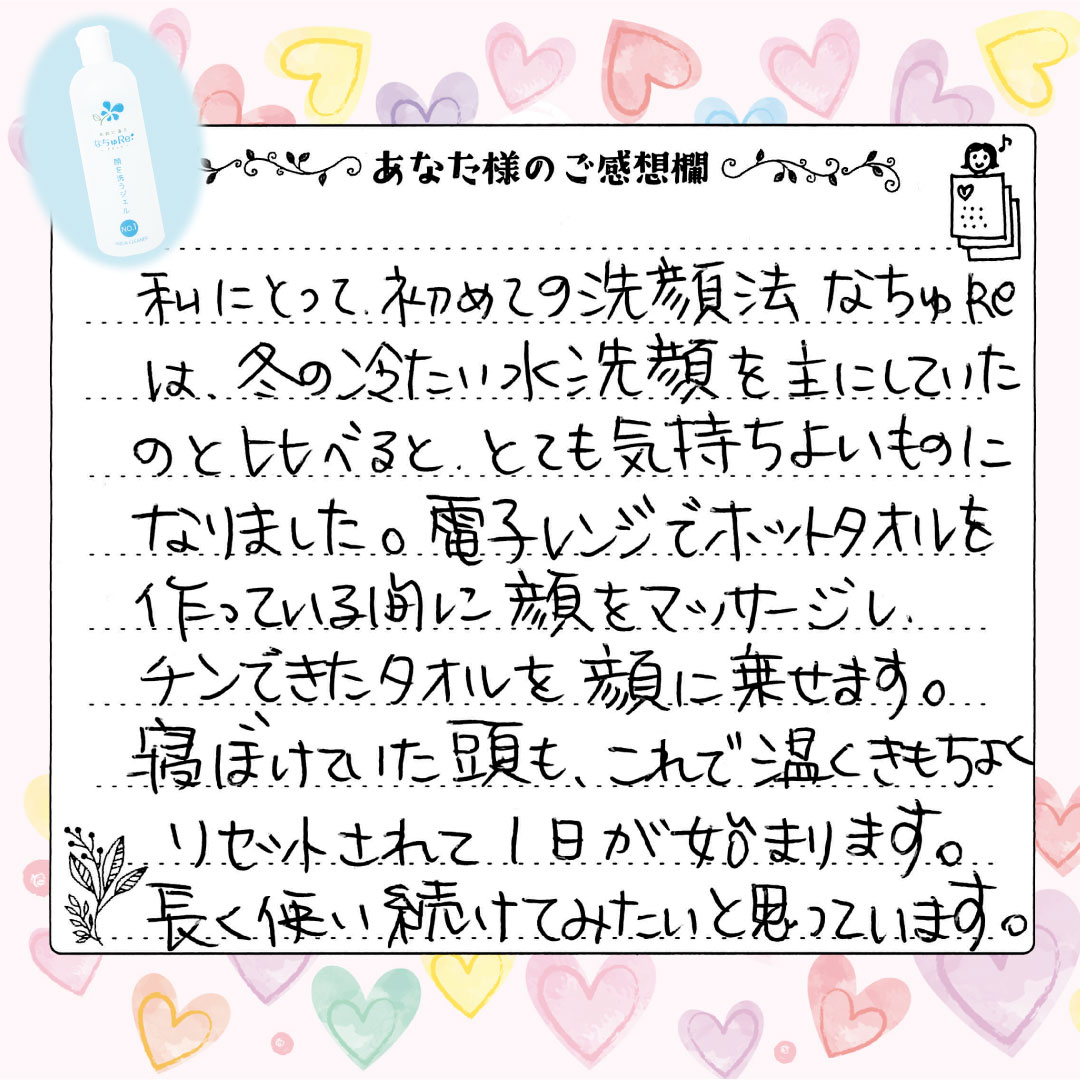 なちゅRe
顔を洗うジェル
NO.1
あなた様のご感想欄
私にとって、初めての洗顔法 なちゅRe
は、冬の冷たい水洗顔を主にしていた
のと比べると、とても気持ちよいものに
なりました。電子レンジでホットタオルを
作っている間に顔をマッサージし、
チンできたタオルを顔に乗せます。
寝ぼけていた頭も、これで温くきもちよく
リセットされて1日が始まります。
長く使い続けてみたいと思っています。